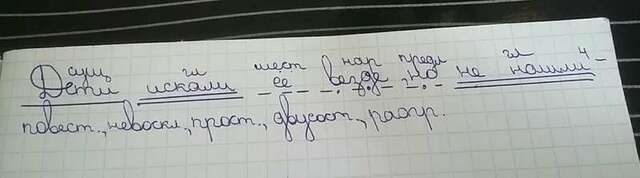 сущ гл мест нар предл гл 4
Дети искали её везде, но не нашли -
повест., невоскл., прост., двусост., распр.